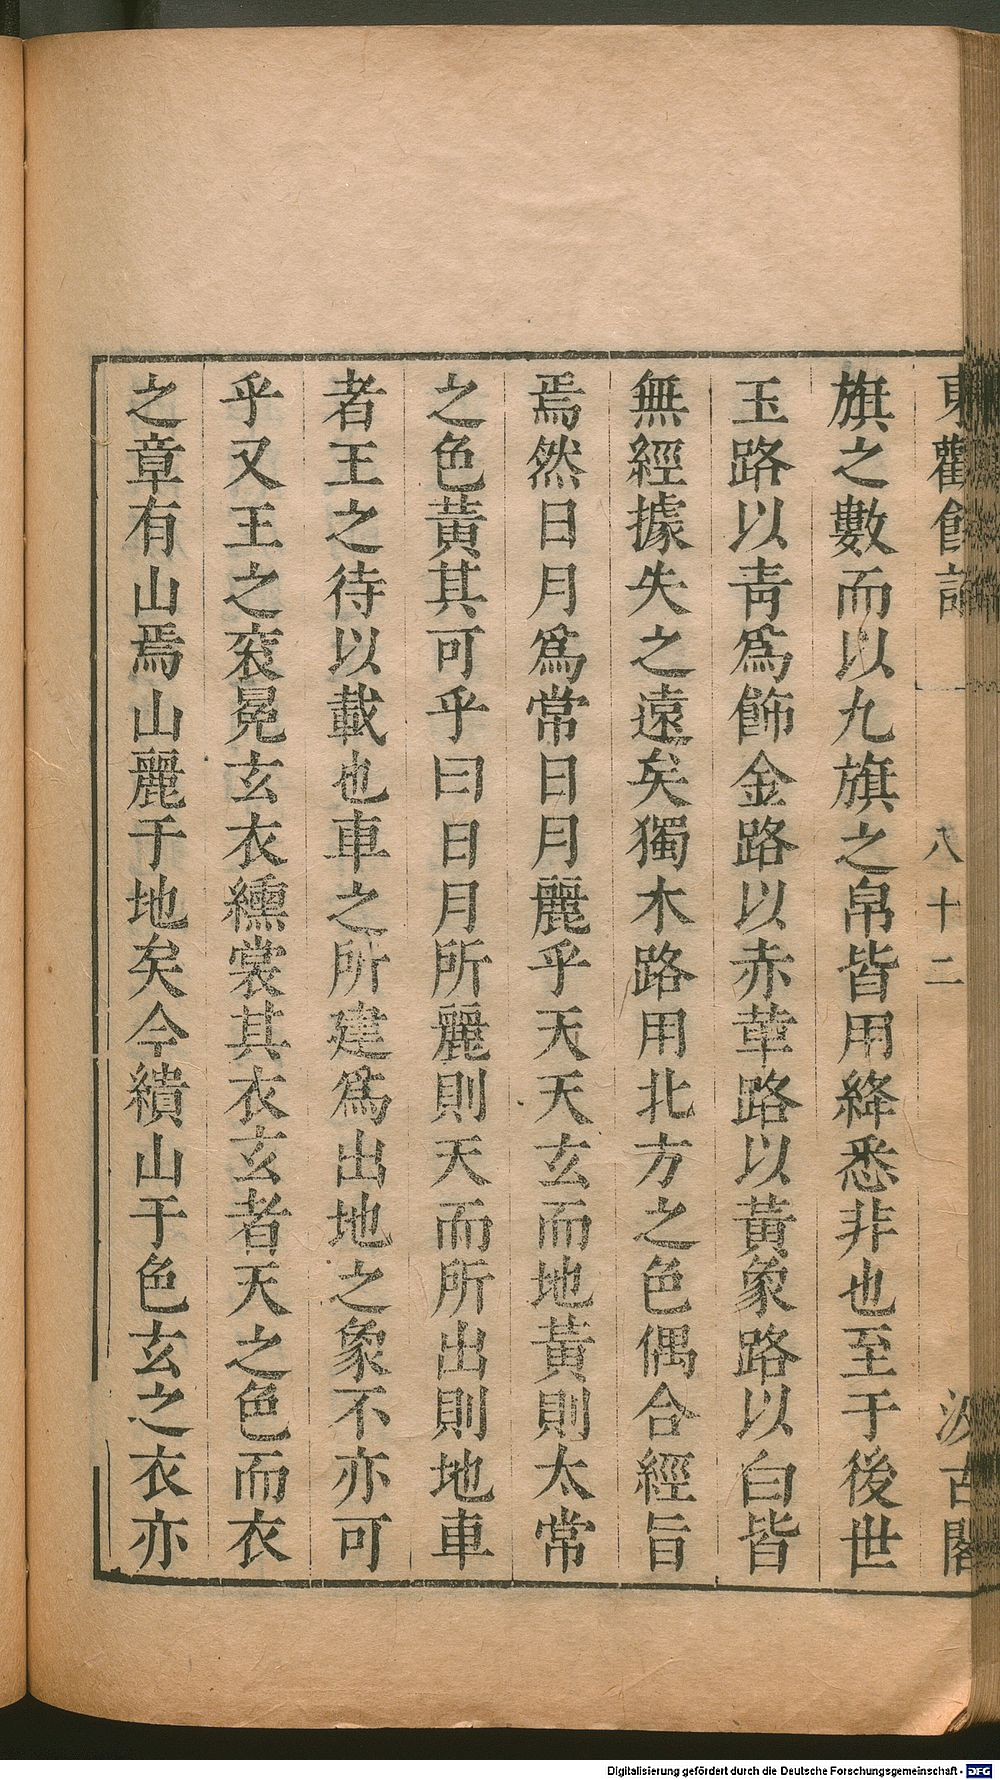 東觀餘論
八十二
汲古閣
旗之數而以九旗之帛皆用絳悉非也至于後世
玉路以靑爲飾金路以赤革路以黃象路以白皆
無經據失之遠矣獨木路用北方之色偶合經旨
焉然日月爲常日月麗乎天天玄而地黃則太常
之色黃其可乎曰日月所麗則天而所出則地車
者王之待以載也車之所建爲出地之象不亦可
乎又王之袞冕玄衣纁裳其衣玄者天之色而衣
之章有山焉山麗于地矣今繢山于色玄之衣亦
Digitalisierung gefördert durch die Deutsche Forschungsgemeinschaft - DFG